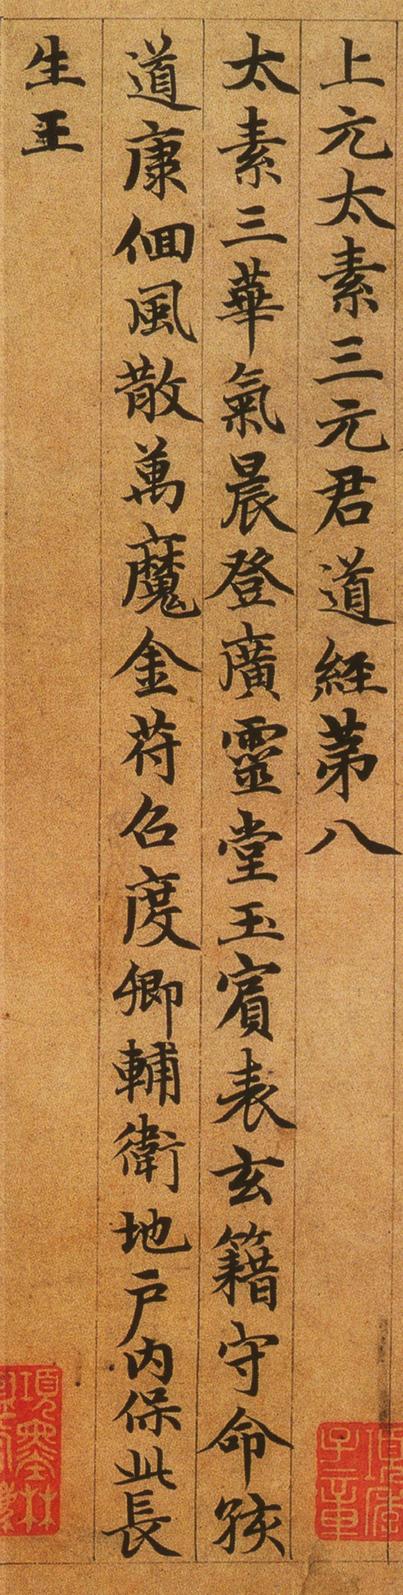 上元太素三元君道經苐八
太素三華氣晨登廣靈堂玉賓表玄籍守命孩
道康佪風散萬魔金苻召度卿輔衛地户内保此長
生王
項墨林
項
子京章